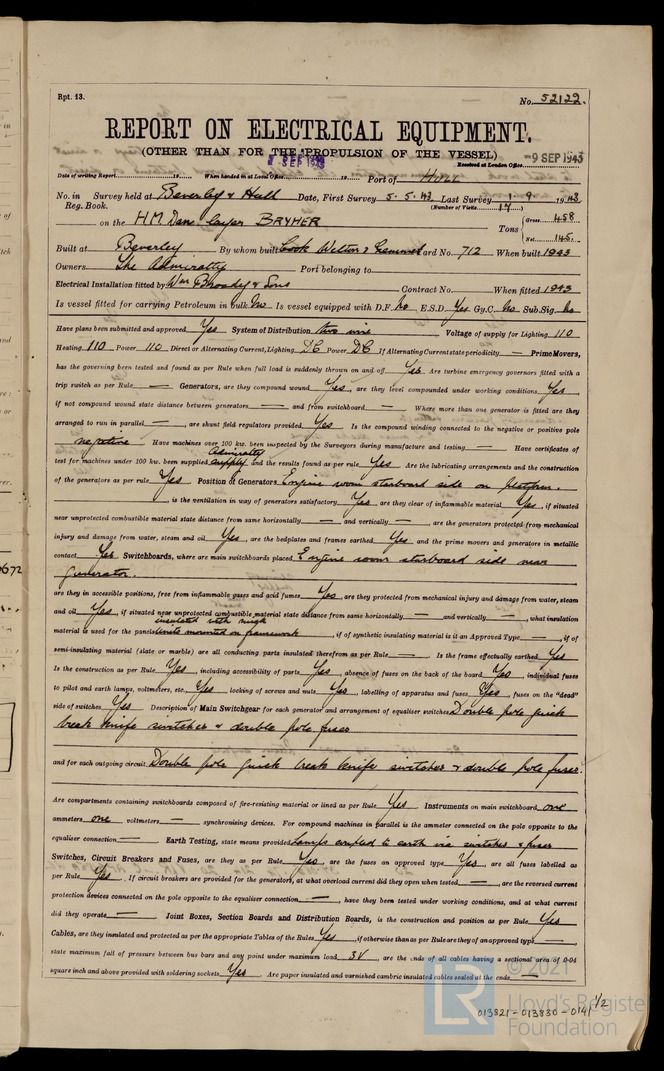 Rpt. 13.
No. 52122.
REPORT ON ELECTRICAL EQUIPMENT.
(OTHER THAN FOR THE PROPULSION OF THE VESSEL)
SEP 1943
Received at London Office -9 SEP 1943
Date of writing Report 19 When handed in at Local Office 19 Port of Hull
No. in Survey held at Beverley & Hull Date, First Survey 5.5.43 Last Survey 1.9. 1943
Reg. Book. (Number of Visits 17)
on the H.M. Dan Layer BRYHER Tons Gross 458
Net 145.
Built at Beverley By whom built Cook Welton & Gemmell Yard No. 712 When built 1943
Owners The Admiralty Port belonging to
Electrical Installation fitted by Wm Broady & Sons Contract No. When fitted 1943
Is vessel fitted for carrying Petroleum in bulk No Is vessel equipped with D.F. No E.S.D. Yes Gy.C. No Sub.Sig. No
Have plans been submitted and approved Yes System of Distribution two wire Voltage of supply for Lighting 110
Heating 110 Power 110 Direct or Alternating Current, Lighting DC Power DC If Alternating Current state periodicity — Prime Movers,
has the governing been tested and found as per Rule when full load is suddenly thrown on and off Yes Are turbine emergency governors fitted with a
trip switch as per Rule — Generators, are they compound wound Yes, are they level compounded under working conditions Yes,
if not compound wound state distance between generators — and from switchboard — Where more than one generator is fitted are they
arranged to run in parallel —, are shunt field regulators provided Yes Is the compound winding connected to the negative or positive pole
negative Have machines over 100 kw. been inspected by the Surveyors during manufacture and testing — Have certificates of
test for machines under 100 kw. been supplied Admiralty supply and the results found as per rule Yes Are the lubricating arrangements and the construction
of the generators as per rule Yes Position of Generators Engine room starboard side on platform.
is the ventilation in way of generators satisfactory Yes are they clear of inflammable material Yes, if situated
near unprotected combustible material state distance from same horizontally — and vertically —, are the generators protected from mechanical
injury and damage from water, steam and oil Yes, are the bedplates and frames earthed Yes and the prime movers and generators in metallic
contact Yes Switchboards, where are main switchboards placed Engine room starboard side near
generator.
are they in accessible positions, free from inflammable gases and acid fumes Yes, are they protected from mechanical injury and damage from water, steam
and oil Yes, if situated near unprotected combustible material state distance from same horizontally — and vertically —, what insulation
material is used for the panels insulated with units mounted on framework, if of synthetic insulating material is it an Approved Type —, if of
semi-insulating material (slate or marble) are all conducting parts insulated therefrom as per Rule — Is the frame effectually earthed Yes
Is the construction as per Rule Yes, including accessibility of parts Yes, absence of fuses on the back of the board Yes, individual fuses
to pilot and earth lamps, voltmeters, etc. Yes locking of screws and nuts Yes, labelling of apparatus and fuses Yes, fuses on the "dead"
side of switches Yes Description of Main Switchgear for each generator and arrangement of equaliser switches Double pole quick
break knife switches & double pole fuses
and for each outgoing circuit Double pole quick break knife switches & double pole fuses.
Are compartments containing switchboards composed of fire-resisting material or lined as per Rule Yes Instruments on main switchboard one
ammeters one voltmeters — synchronising devices. For compound machines in parallel is the ammeter connected to the pole opposite to the
equaliser connection — Earth Testing, state means provided Lamps coupled to earth via switches & fuses
Switches, Circuit Breakers and Fuses, are they as per Rule Yes, are the fuses an approved type Yes, are all fuses labelled as
per Rule Yes If circuit breakers are provided for the generators, at what overload current did they open when tested —, are the reversed current
protection devices connected on the pole opposite to the equaliser connection —, have they been tested under working conditions, and at what current
did they operate — Joint Boxes, Section Boards and Distribution Boards, is the construction and position as per Rule Yes
Cables, are they insulated and protected as per the appropriate Tables of the Rules Yes, if otherwise than as per Rule are they of an approved type —
state maximum fall of pressure between bus bars and any point under maximum load 3V, are the ends of all cables having a sectional area of 0·04
square inch and above provided with soldering sockets Yes Are paper insulated and varnished cambric insulated cables sealed at the ends —
© 2021
Lloyd's Register
Foundation
013821-013830-0141 1/2